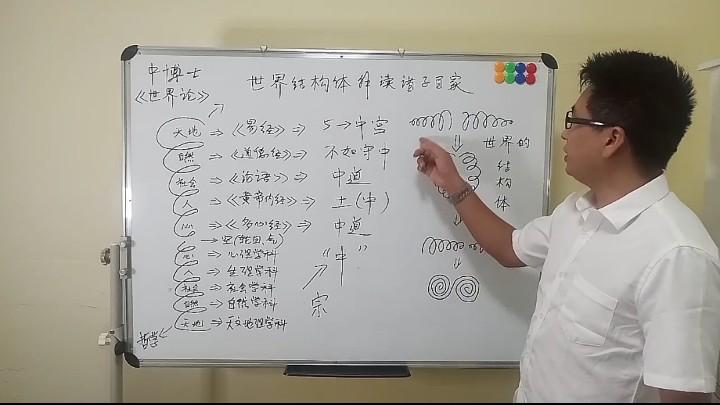 申博士
《世界论》
世界结构体解读诸子百家
天地 ⇒ 《易经》 ⇒ 5→中宫
自然 ⇒ 《道德经》 ⇒ 不如守中
社会 ⇒ 《论语》 ⇒ 中道
人 ⇒ 《黄帝内经》 ⇒ 土(中)
心 ⇒ 《多心经》 ⇒ 中道
心 ⇒ 心理学科
人 ⇒ 生理学科
社会 ⇒ 社会学科
自然 ⇒ 自然学科
天地 ⇒ 天文地理学科
哲学
“中”
宗
世界的
结
构
体